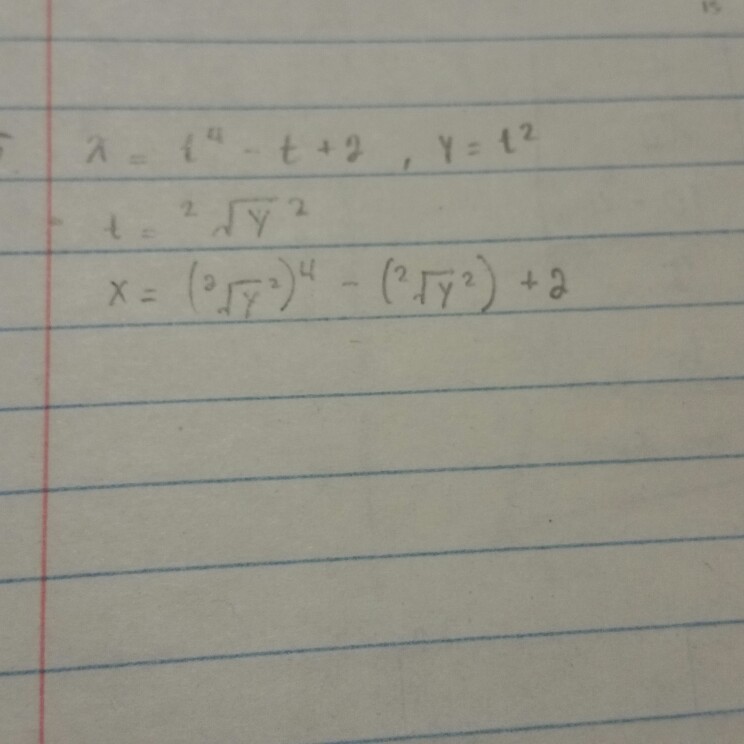 15
x = t⁴ - t + 2 , y = t²
t = ²√y ²
x = (²√y ²)⁴ - (²√y ²) + 2